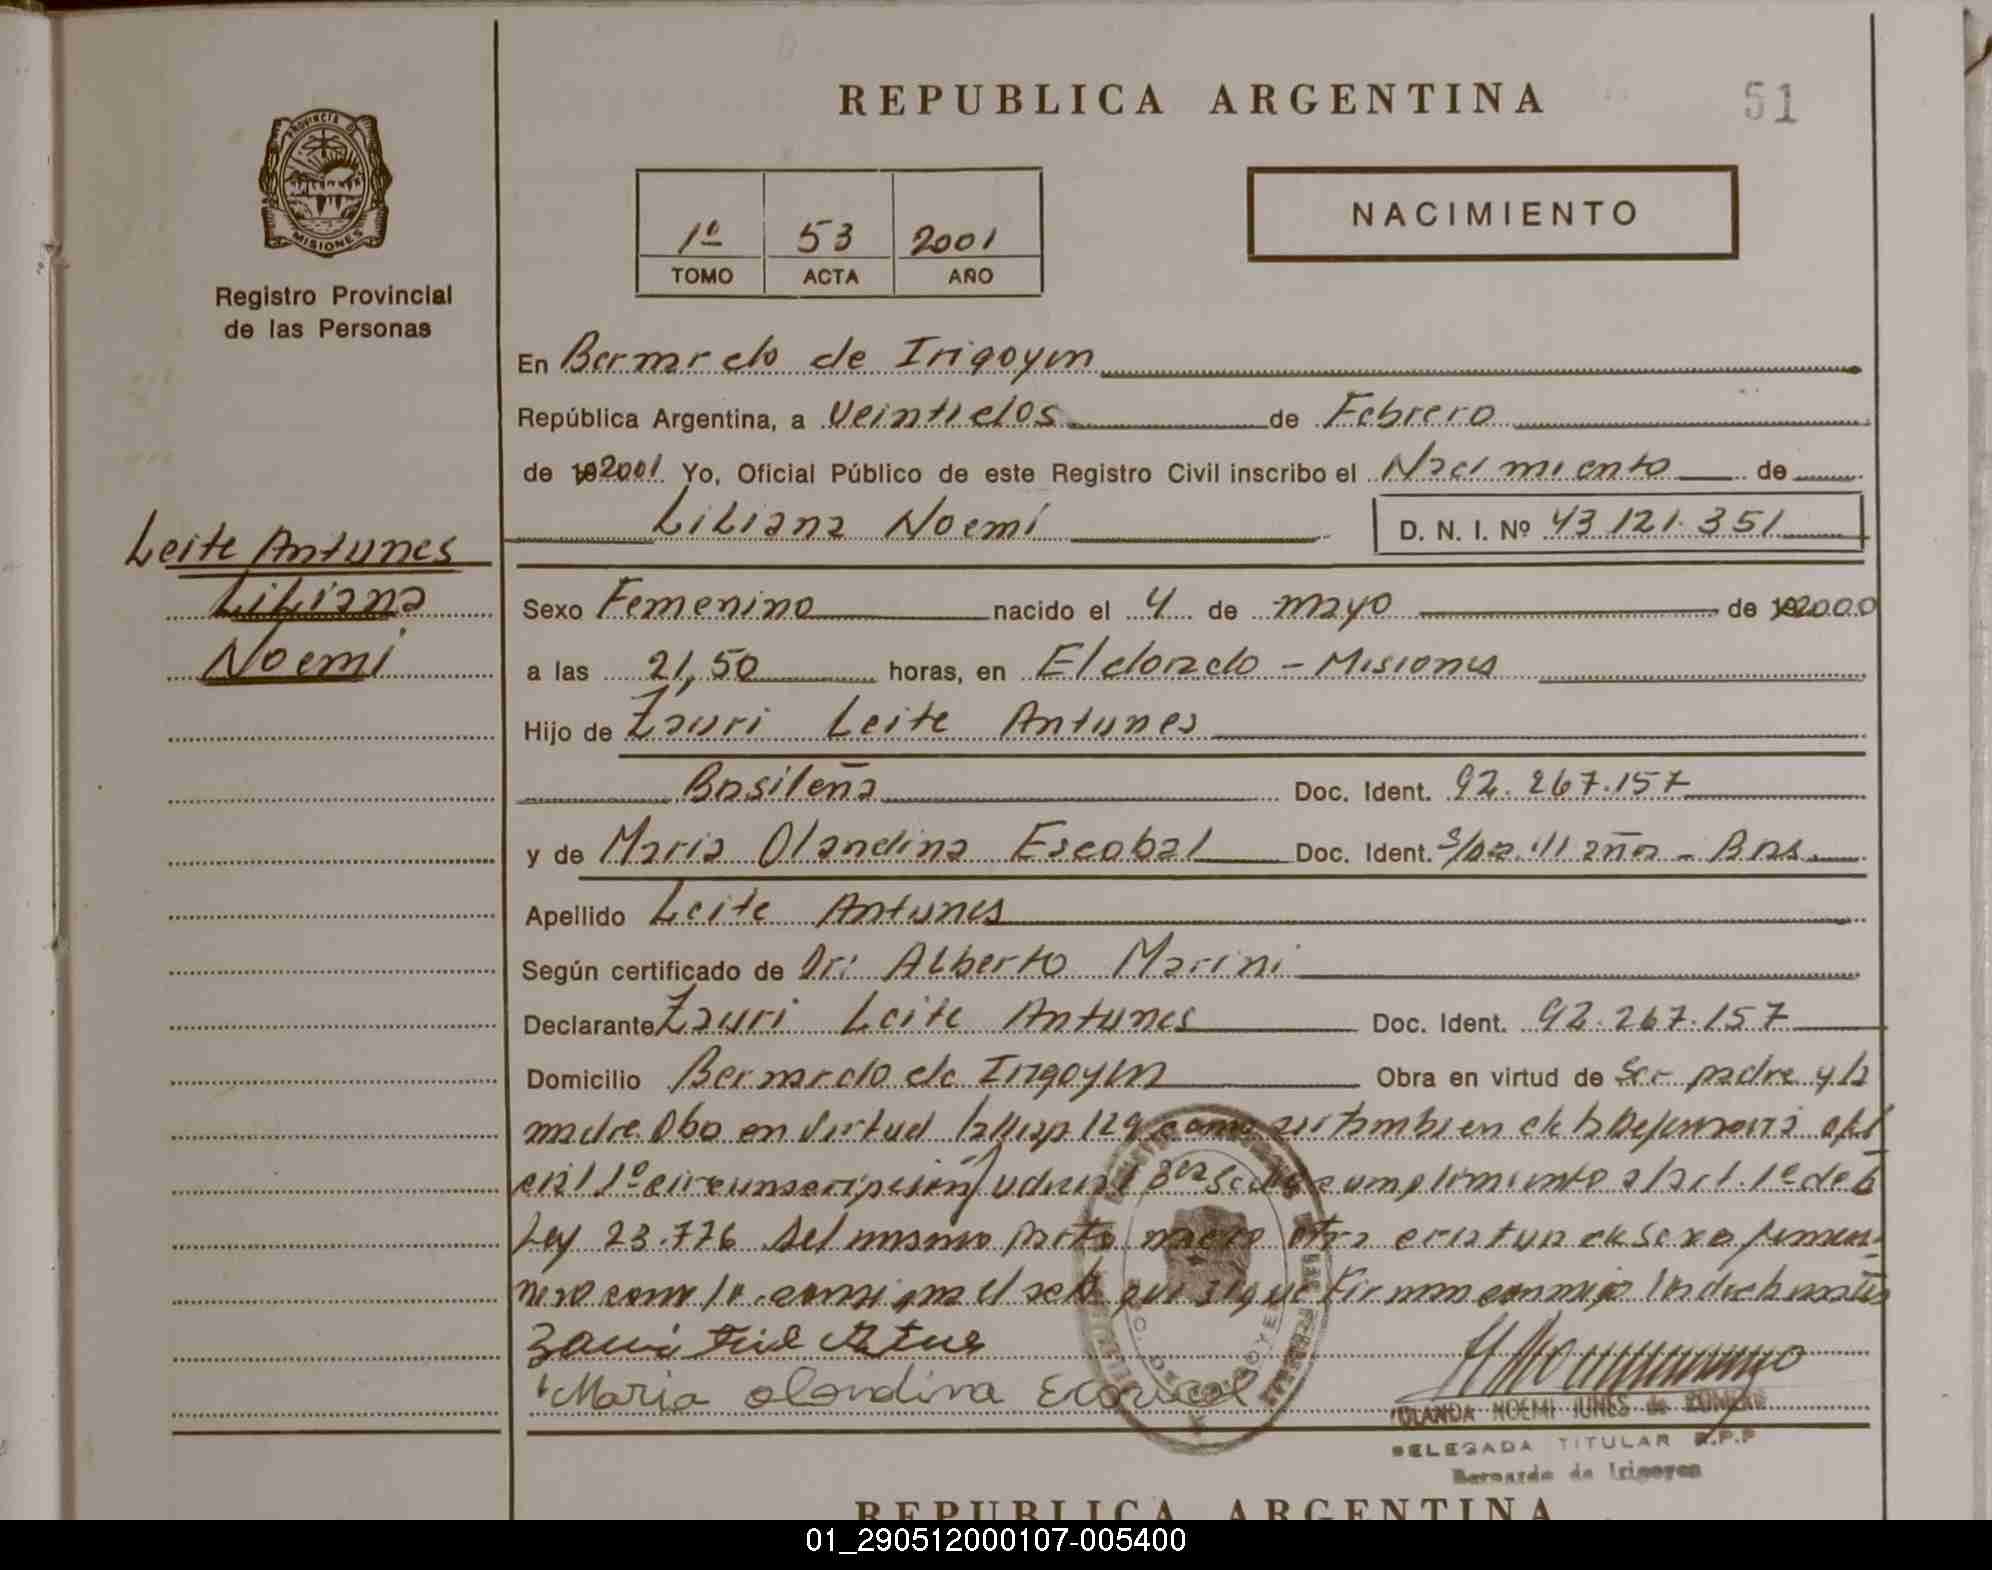 REPUBLICA ARGENTINA
51
PROVINCIA DE
MISIONES
Registro Provincial
de las Personas
1º 53 2001
TOMO ACTA AÑO
NACIMIENTO
En Bernardo de Irigoyen
República Argentina, a Veintidos de Febrero
de 2001 Yo, Oficial Público de este Registro Civil inscribo el Nacimiento de
Liliana Noemí D. N. I. Nº 43 121.351
Leite Antunes
Liliana
Noemi
Sexo Femenino nacido el 4 de mayo de 2000
a las 21,50 horas, en Eldorado - Misiones
Hijo de Zauri Leite Antunes
Brasileña Doc. Ident. 92.267.157
y de Maria Olandina Escobal Doc. Ident. años - Bras.
Apellido Leite Antunes
Según certificado de Dr: Alberto Marini
Declarante Zauri Leite Antunes Doc. Ident. 92.267.157
Domicilio Bernardo de Irigoyen Obra en virtud de Ser padre y la
madre Obo en virtud 129 como asi tambien de la Defensoria
1º circunscripción Judicial cumplimiento al art. 1º de la
Ley 23.776 Del mismo parto nacio otra criatura de sexo femen-
nino como lo consigna el acta que sigue Firman conmigo
Maria Olandina
YOLANDA NOEMI JUNES de
DELEGADA TITULAR R.P.P
Bernardo de Irigoyen
REPUBLICA ARGENTINA
01_290512000107-005400